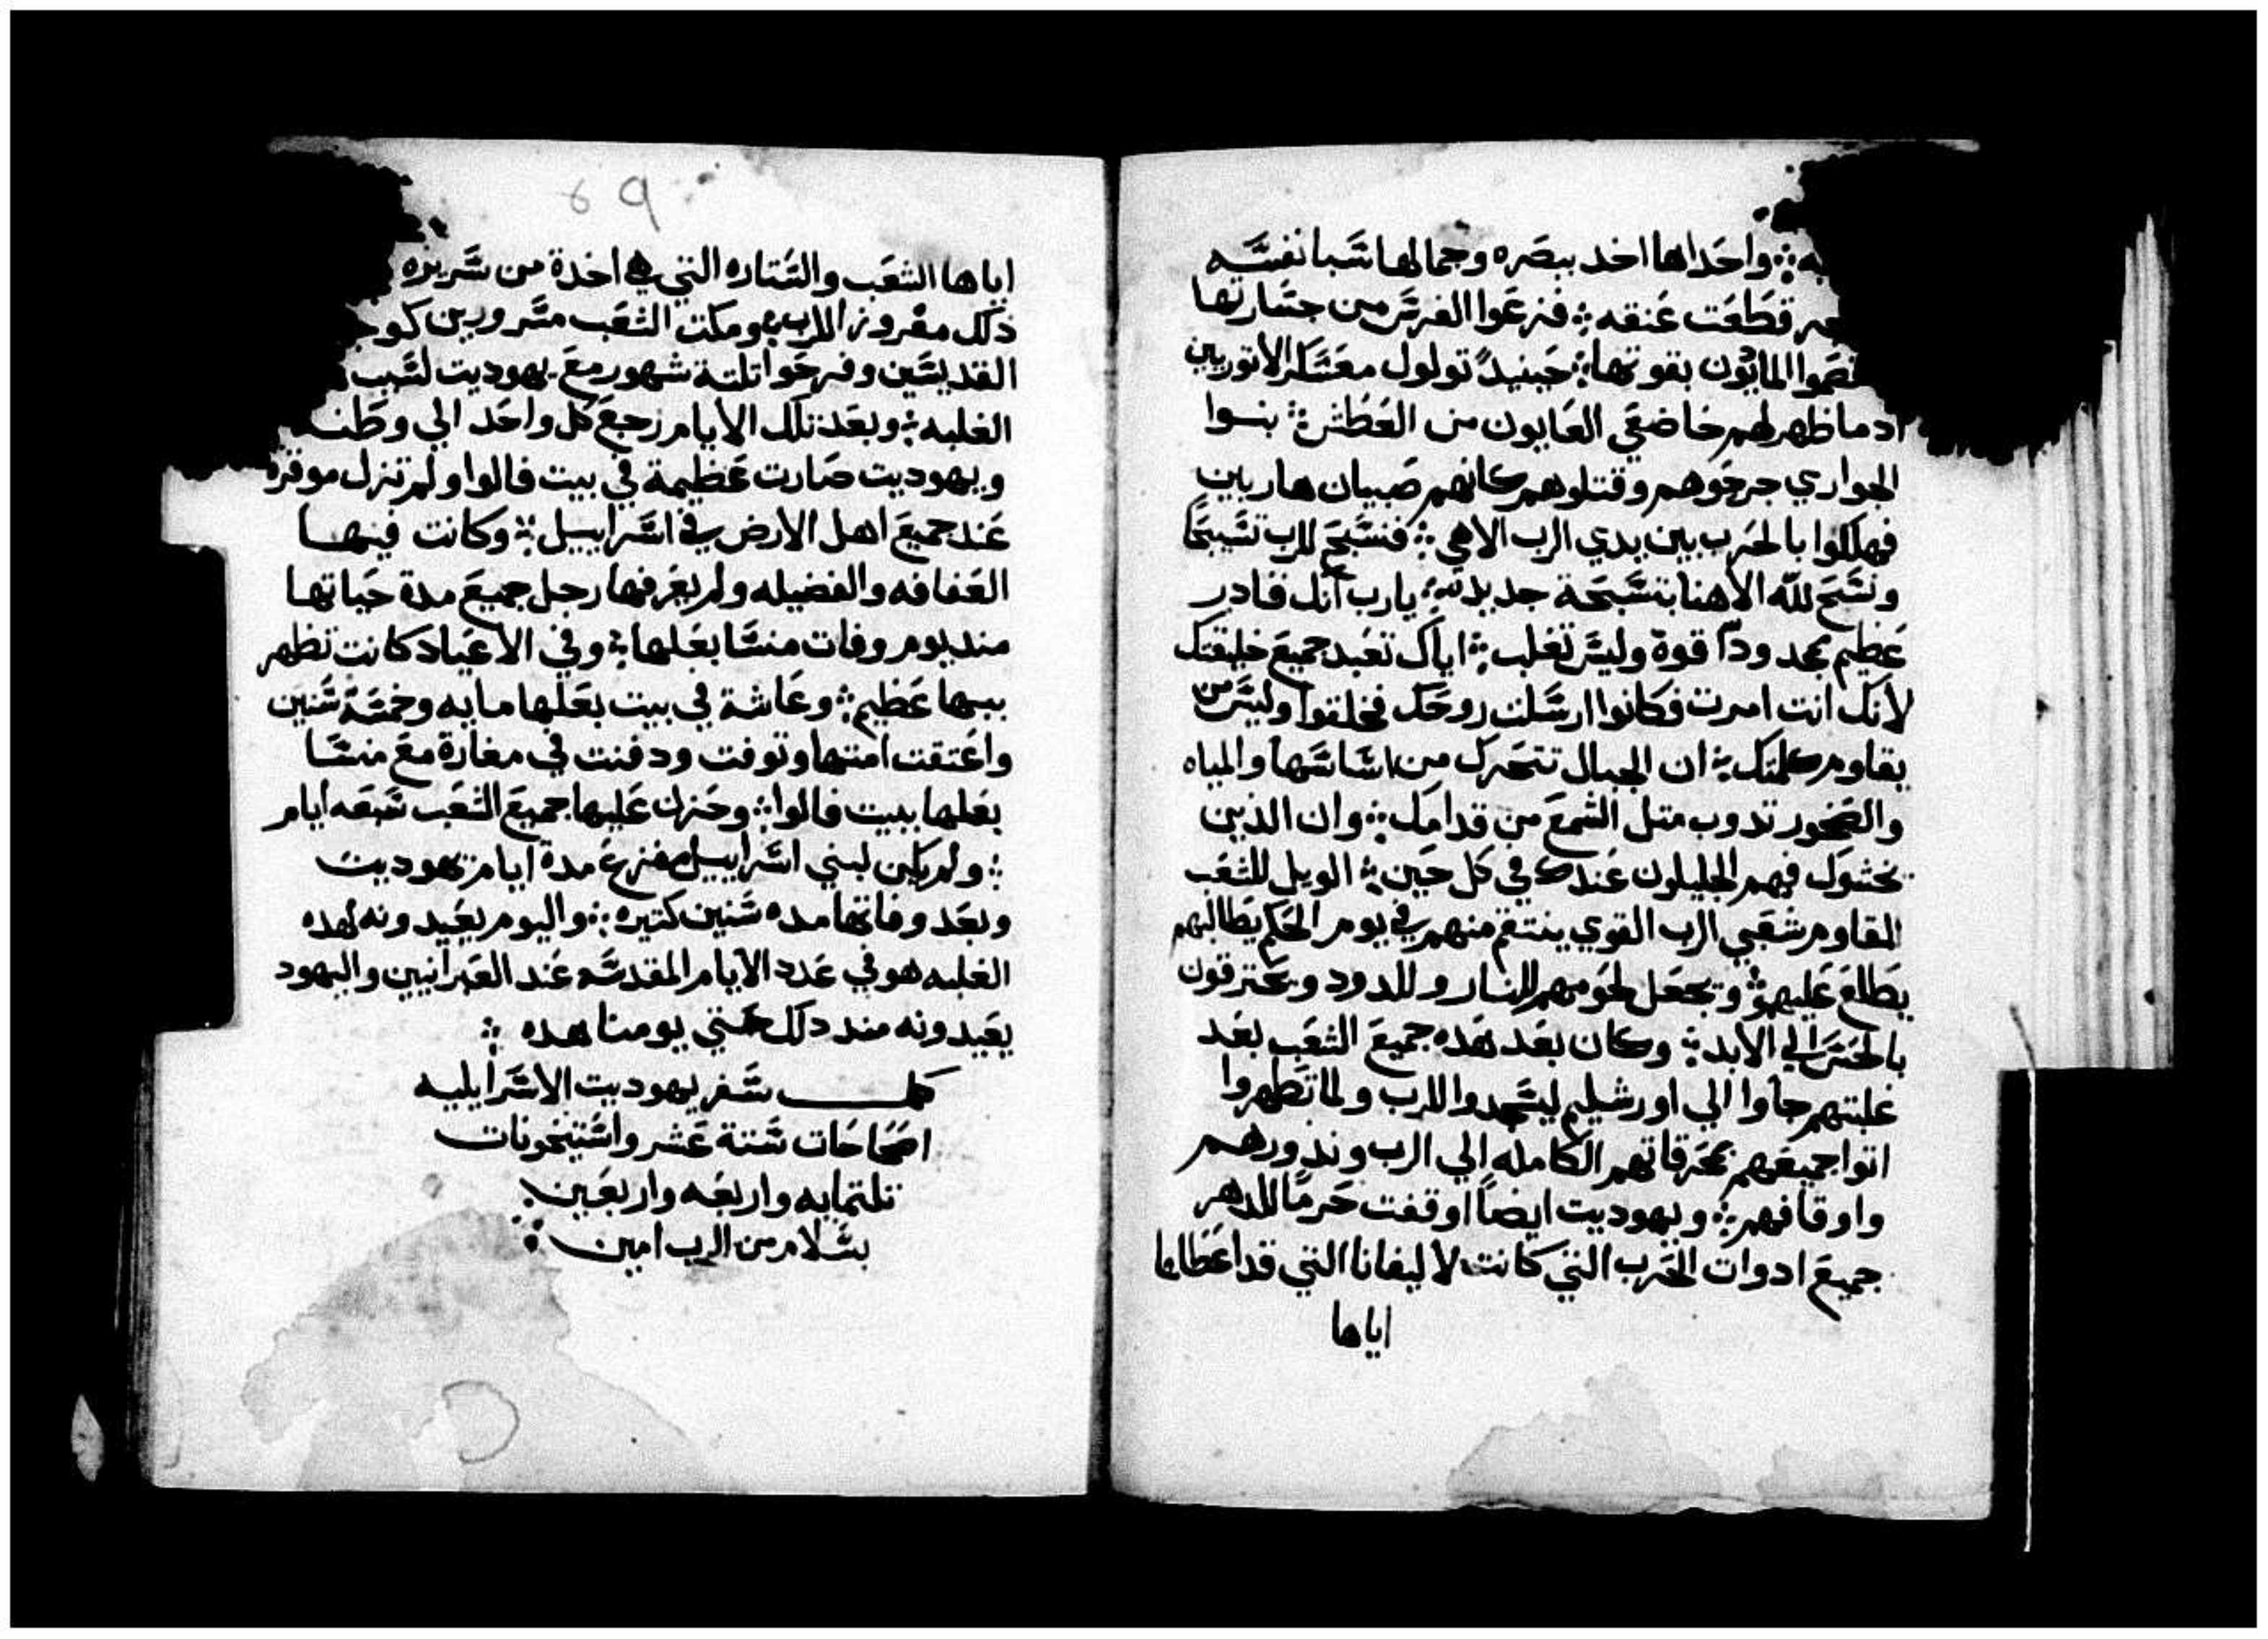 به ⁘ واحداها اخد ببصره وجمالها سبا نفسه
قطعت عنقه ⁘ فزعوا الفرس من جسارتها
الماديون بقوتها ⁘ حينيدً تولول معسكر الاتوريين
ادما ظهر لهم خاضعي العايون من العطش ⁘ بنوا
الجواري جرحوهم وقتلوهم كانهم صبيان هاربين
فهلكوا بالحرب بين يدي الرب الاهي ⁘ فنسبح للرب تسبيحًا
ونسبح للّه الاهنا بتسبحة جديدة ⁘ يارب انك قادر
عظيم بمجد وذا قوة وليس تغلب ⁘ اياك تعبد جميع خليقتك
لانك انت امرت فكانوا ارسلت روحك فخلقوا وليس من
يقاوم كلمتك ⁘ ان الجبال تتحرك من اساسها والمياه
والصخور تدوب متل الشمع من قدامك ⁘ وان الذين
يخشوك فهم الجليلون عندك في كل حين ⁘ الويل للشعب
المقاوم شعبي الرب القوي ينتقم منهم في يوم الحكم يطالبهم
يطلع عليهم ⁘ ويجعل لحومهم للنار وللدود ويحترقون
بالحس الي الابد ⁘ وكان بعد هده جميع الشعب بعد
غلبتهم جاوا الي اورشليم ليسجدوا للرب ولما تطهروا
اتوا جميعهم بمحرقاتهم الكامله الي الرب وندورهم
واوقافهم ⁘ ويهوديت ايضاً اوقفت حرمًا للدهر
جميع ادوات الحرب التي كانت لاليفانا التي قد اعطاها
اياها
69
اياها الشعب والستاره التي هي اخدة من سريره
ذلك مفروز للرب ⁘ ومكت الشعب مسرورين
القديسين وفرحوا تلتة شهور مع يهوديت لسبب
الغلبه ⁘ وبعد تلك الايام رجع كل واحد الي وطنه
ويهوديت صارت عظيمة في بيت فالوا ولم تزل موقرة
عند جميع اهل الارض في اسراييل ⁘ وكانت فيها
العفافه والفضيله ولم يعرفها رجل جميع مدة حياتها
مند يوم وفات منسا بعلها ⁘ وفي الاعياد كانت تظهر
ببها عظيم ⁘ وعاشة في بيت بعلها مايه وخمسة سنين
واعتقت امتها وتوفت ودفنت في مغارة مع منسا
بعلها ببيت فالوا ⁘ وحزن عليها جميع الشعب سبعه ايام
⁘ ولم يكن لبني اسراييل مفزع مدة ايام يهوديت
وبعد وفاتها مده سنين كتيره ⁘ واليوم يعيدونه لهده
الغلبه هو في عدد الايام المقدسه عند العبرانيين واليهود
يعيدونه مند دلك حتي يومنا هده ⁘
كمل سفر يهوديت الاسرايليه
اصحاحات ستة عشر واستيخونات
تلتمايه واربعه واربعين
بسلام من الرب امين ⁘